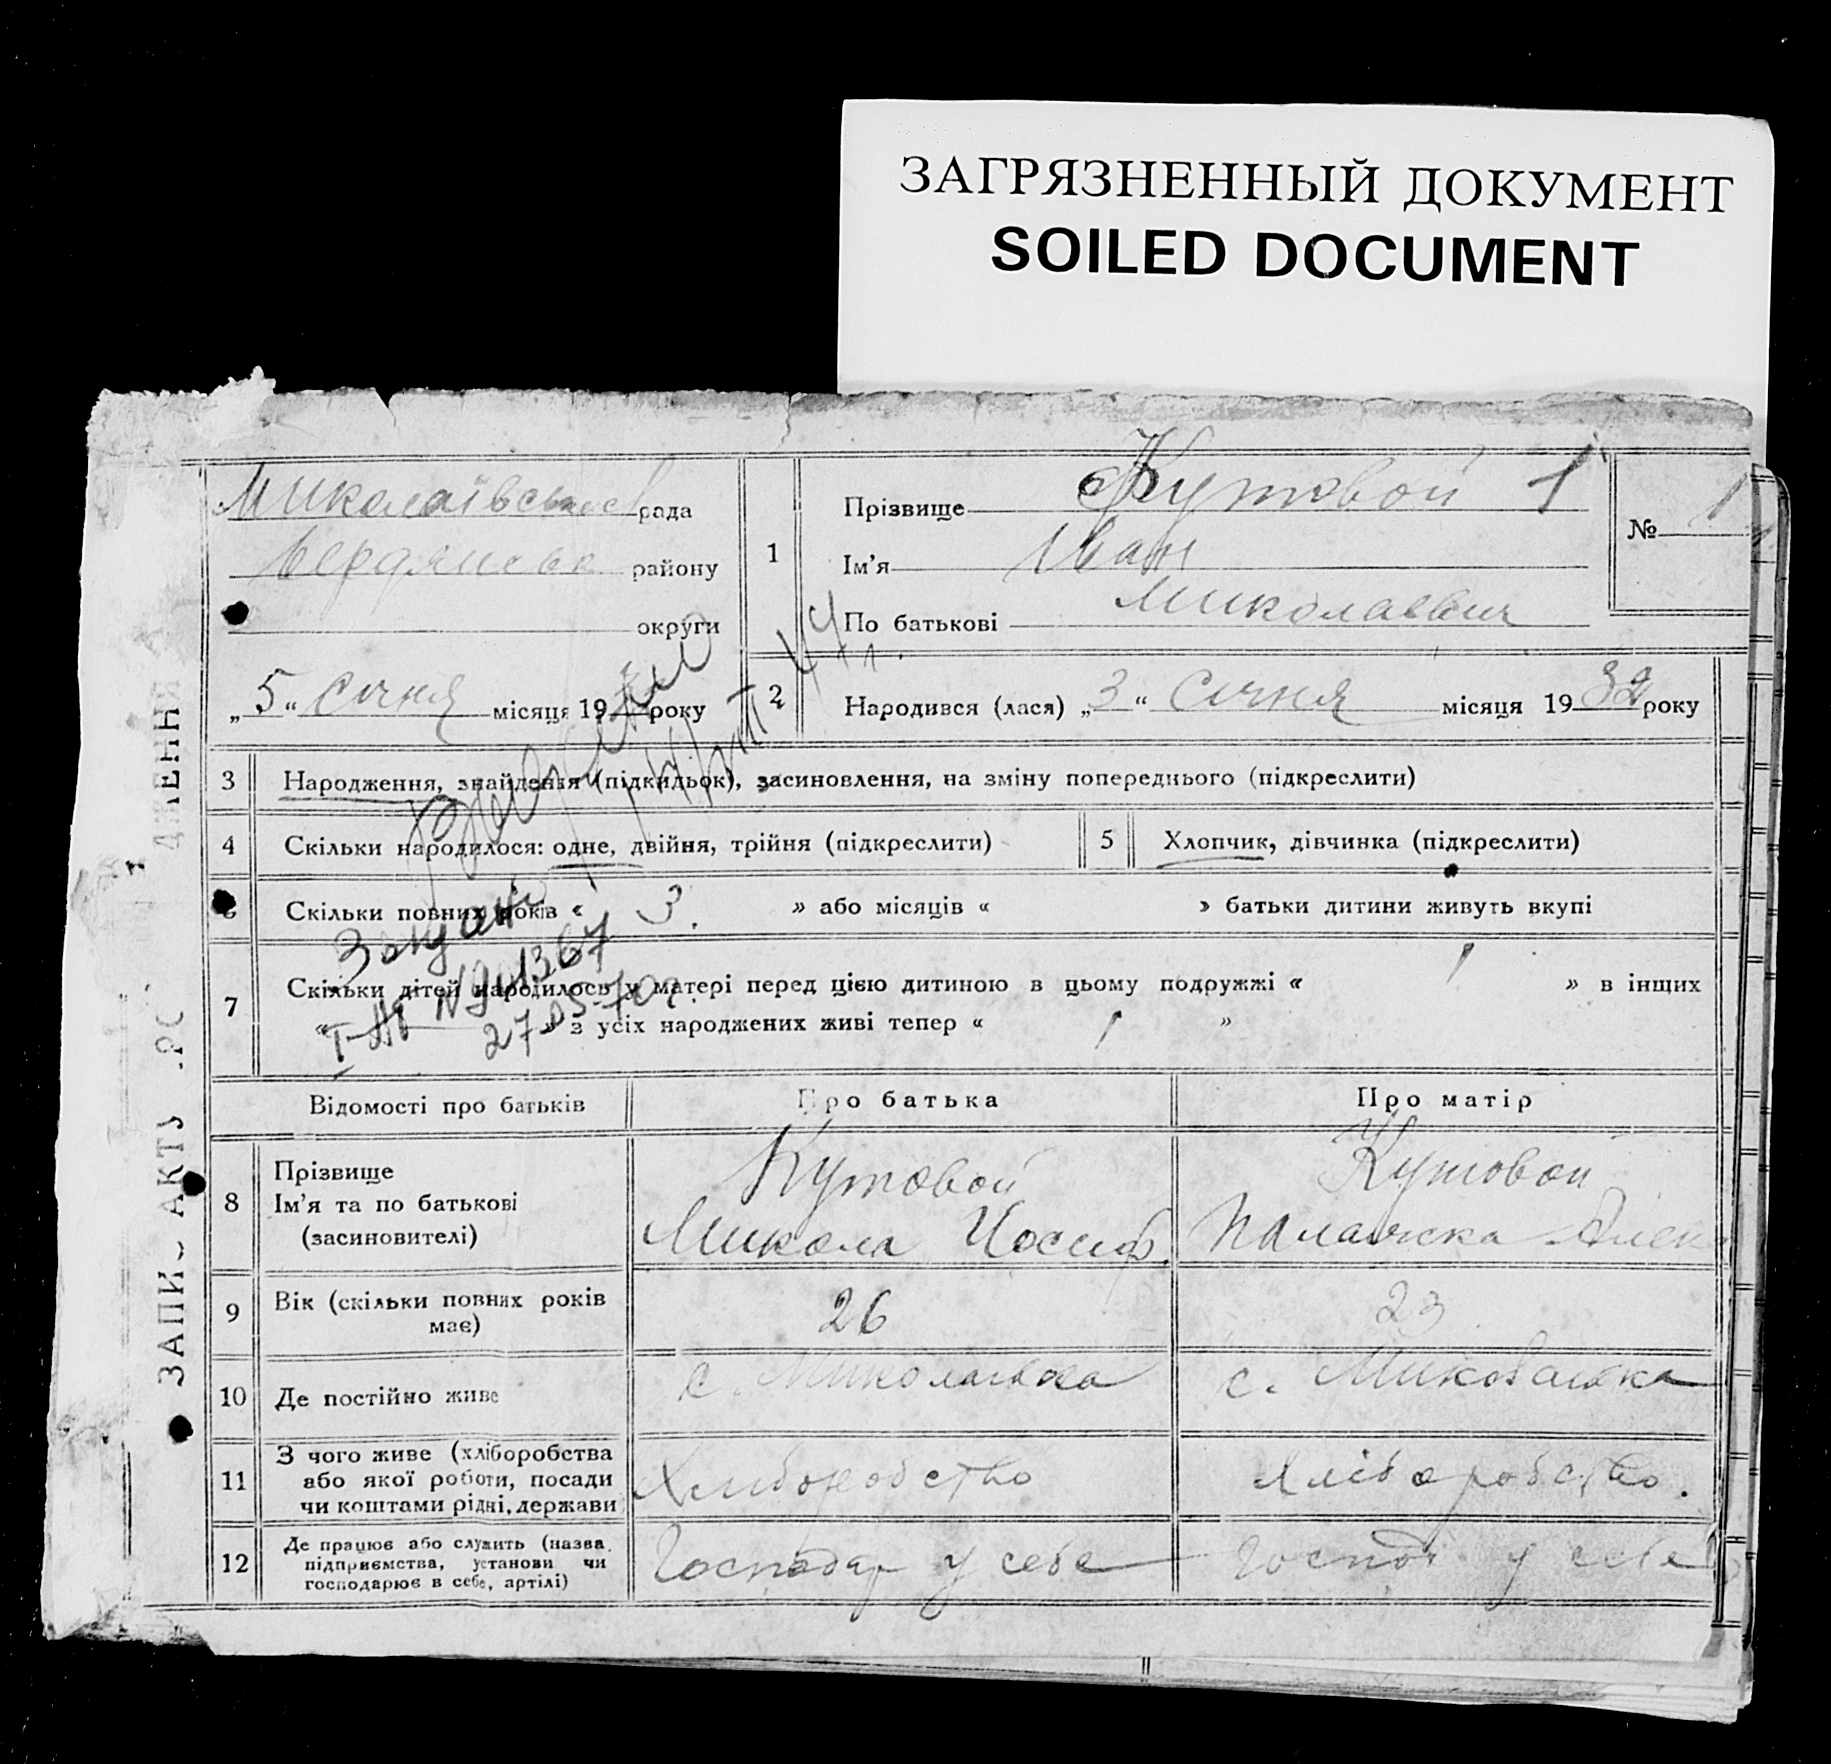 ЗАГРЯЗНЕННЫЙ ДОКУМЕНТ
SOILED DOCUMENT
ЗАПИ АКТУ
рада
Бердянськ району
округи
„5“ січня місяця 19 року
1
Прізвище Кутовой 1
Ім’я Іван
По батькові Миколаевич
№ 1
2
Народився (лася) „3“ Січня місяця 19 32 року
3 Народження, знайдення (підкидьок), засиновлення, на зміну попереднього (підкреслити)
4 Скільки народилося: одне, двійня, трійня (підкреслити)
5 Хлопчик, дівчинка (підкреслити)
Скільки повних років « 3 » або місяців « » батьки дитини живуть вкупі
7 Скільки дітей народилось у матері перед цією дитиною в цьому подружжі « 1 » в інших
« » з усіх народжених живі тепер « 1 »
27-05-70г.
Відомості про батьків
Про батька
Про матір
8 Прізвище
Ім’я та по батькові
(засиновителі)
Кутовой
Микола Иосиф.
Кутовой
9 Вік (скільки повних років має)
26
23
10 Де постійно живе
с. Миколаевка
с.
11 З чого живе (хліборобства або якої роботи, посади чи коштами рідні, держави
Хлиборобство
Хліборобство.
12 Де працює або служить (назва підприємства, установи чи господарює в себе, артілі)
Господар у себе
Господ у себе